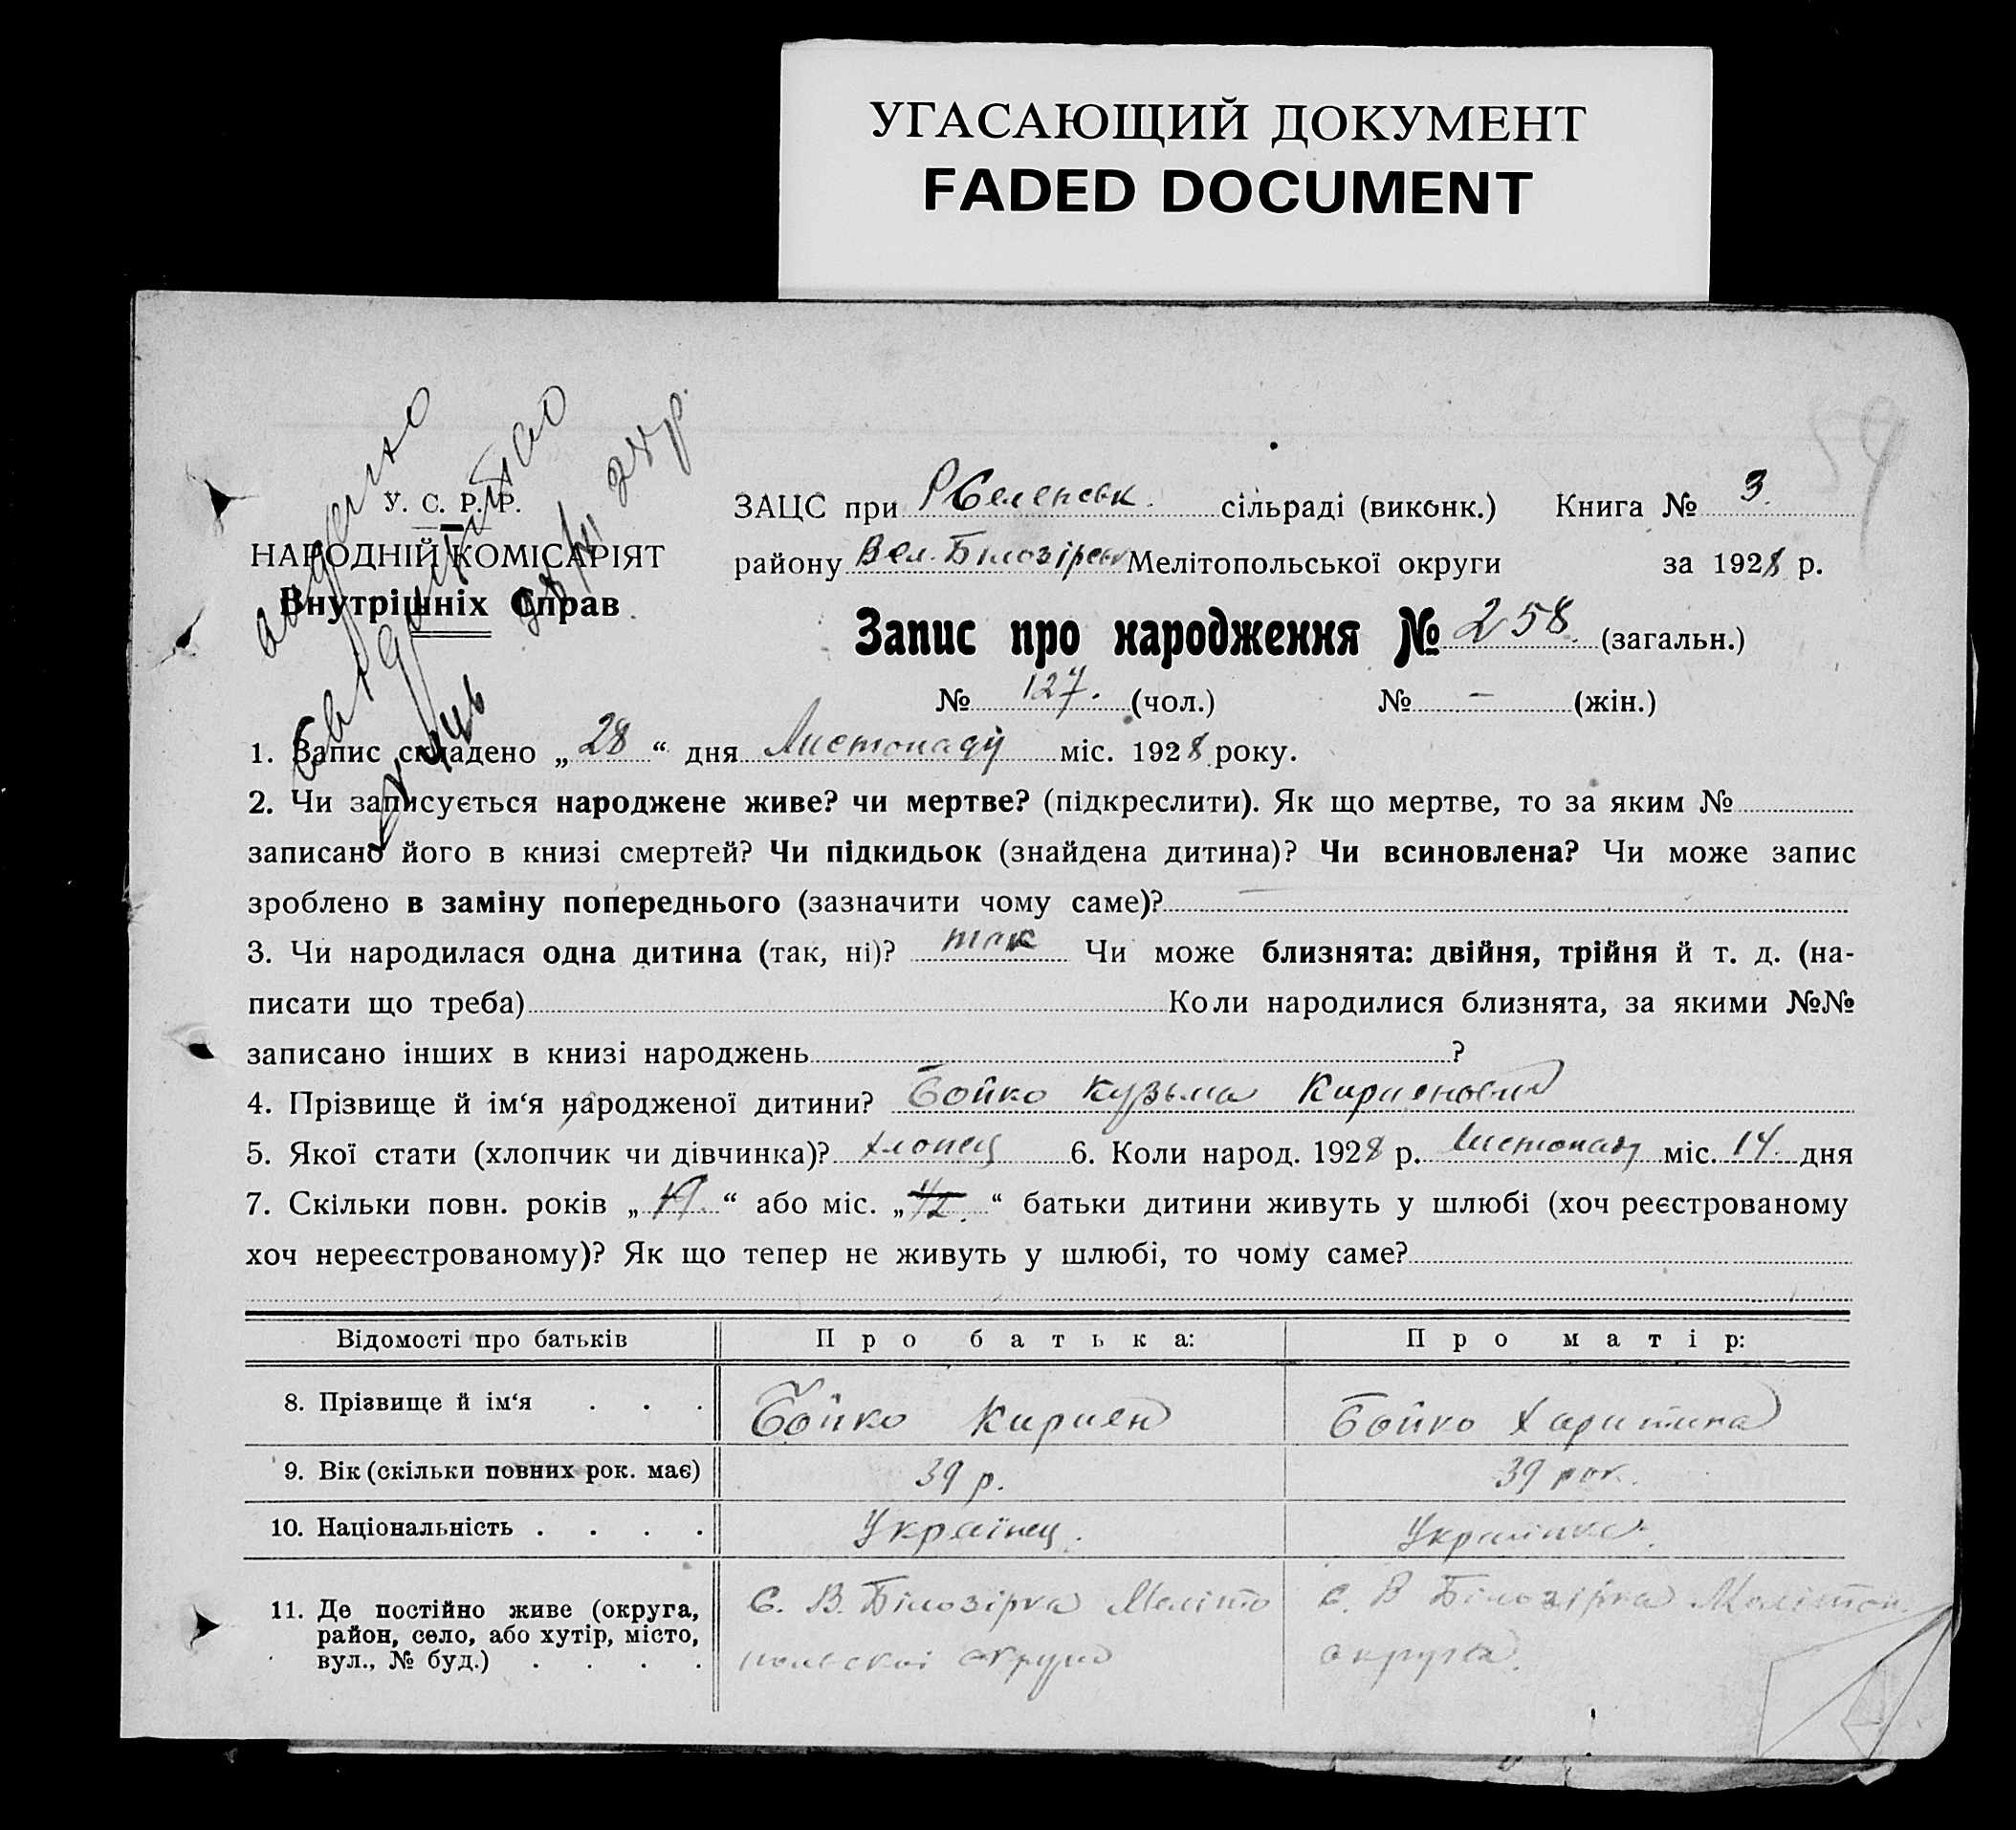 УГАСАЮЩИЙ ДОКУМЕНТ
FADED DOCUMENT
59
У. С. Р. Р.
НАРОДНІЙ КОМІСАРІЯТ
Внутрішніх Справ
видано
28/XI 28р.
ЗАЦС при Р Беленськ. сільраді (виконк.) Книга № 3.
району Вел. Білозірськ Мелітопольської округи за 1928 р.
Запис про народження № 258. (загальн.)
№ 127. (чол.) № – (жін.)
1. Запис складено „28“ дня Листопаду міс. 1928 року.
2. Чи записується народжене живе? чи мертве? (підкреслити). Як що мертве, то за яким №
записано його в книзі смертей? Чи підкидьок (знайдена дитина)? Чи всиновлена? Чи може запис
зроблено в заміну попереднього (зазначити чому саме)? —
3. Чи народилася одна дитина (так, ні)? так Чи може близнята: двійня, трійня й т. д. (на-
писати що треба) Коли народилися близнята, за якими №№
записано інших в книзі народжень ?
4. Прізвище й ім‘я народженої дитини? Бойко Кузьма Кириенович
5. Якої стати (хлопчик чи дівчинка)? хлопец 6. Коли народ. 1928 р. Листопаду міс. 14. дня
7. Скільки повн. років „19.“ або міс. „ “ батьки дитини живуть у шлюбі (хоч реєстрованому
хоч нереєстрованому)? Як що тепер не живуть у шлюбі, то чому саме?
Відомості про батьків Про батька: Про матір:
8. Прізвище й ім‘я . . . Бойко Кириен Бойко Харитина
9. Вік (скільки повних рок. має) 39 р. 39 рок.
10. Національність . . . . Українец. Українка.
11. Де постійно живе (округа, район, село, або хутір, місто, вул., № буд.) . . . . С. В. Білозірка Меліто
польскої округи
с. В Білозірка Мелітоп.
округи.